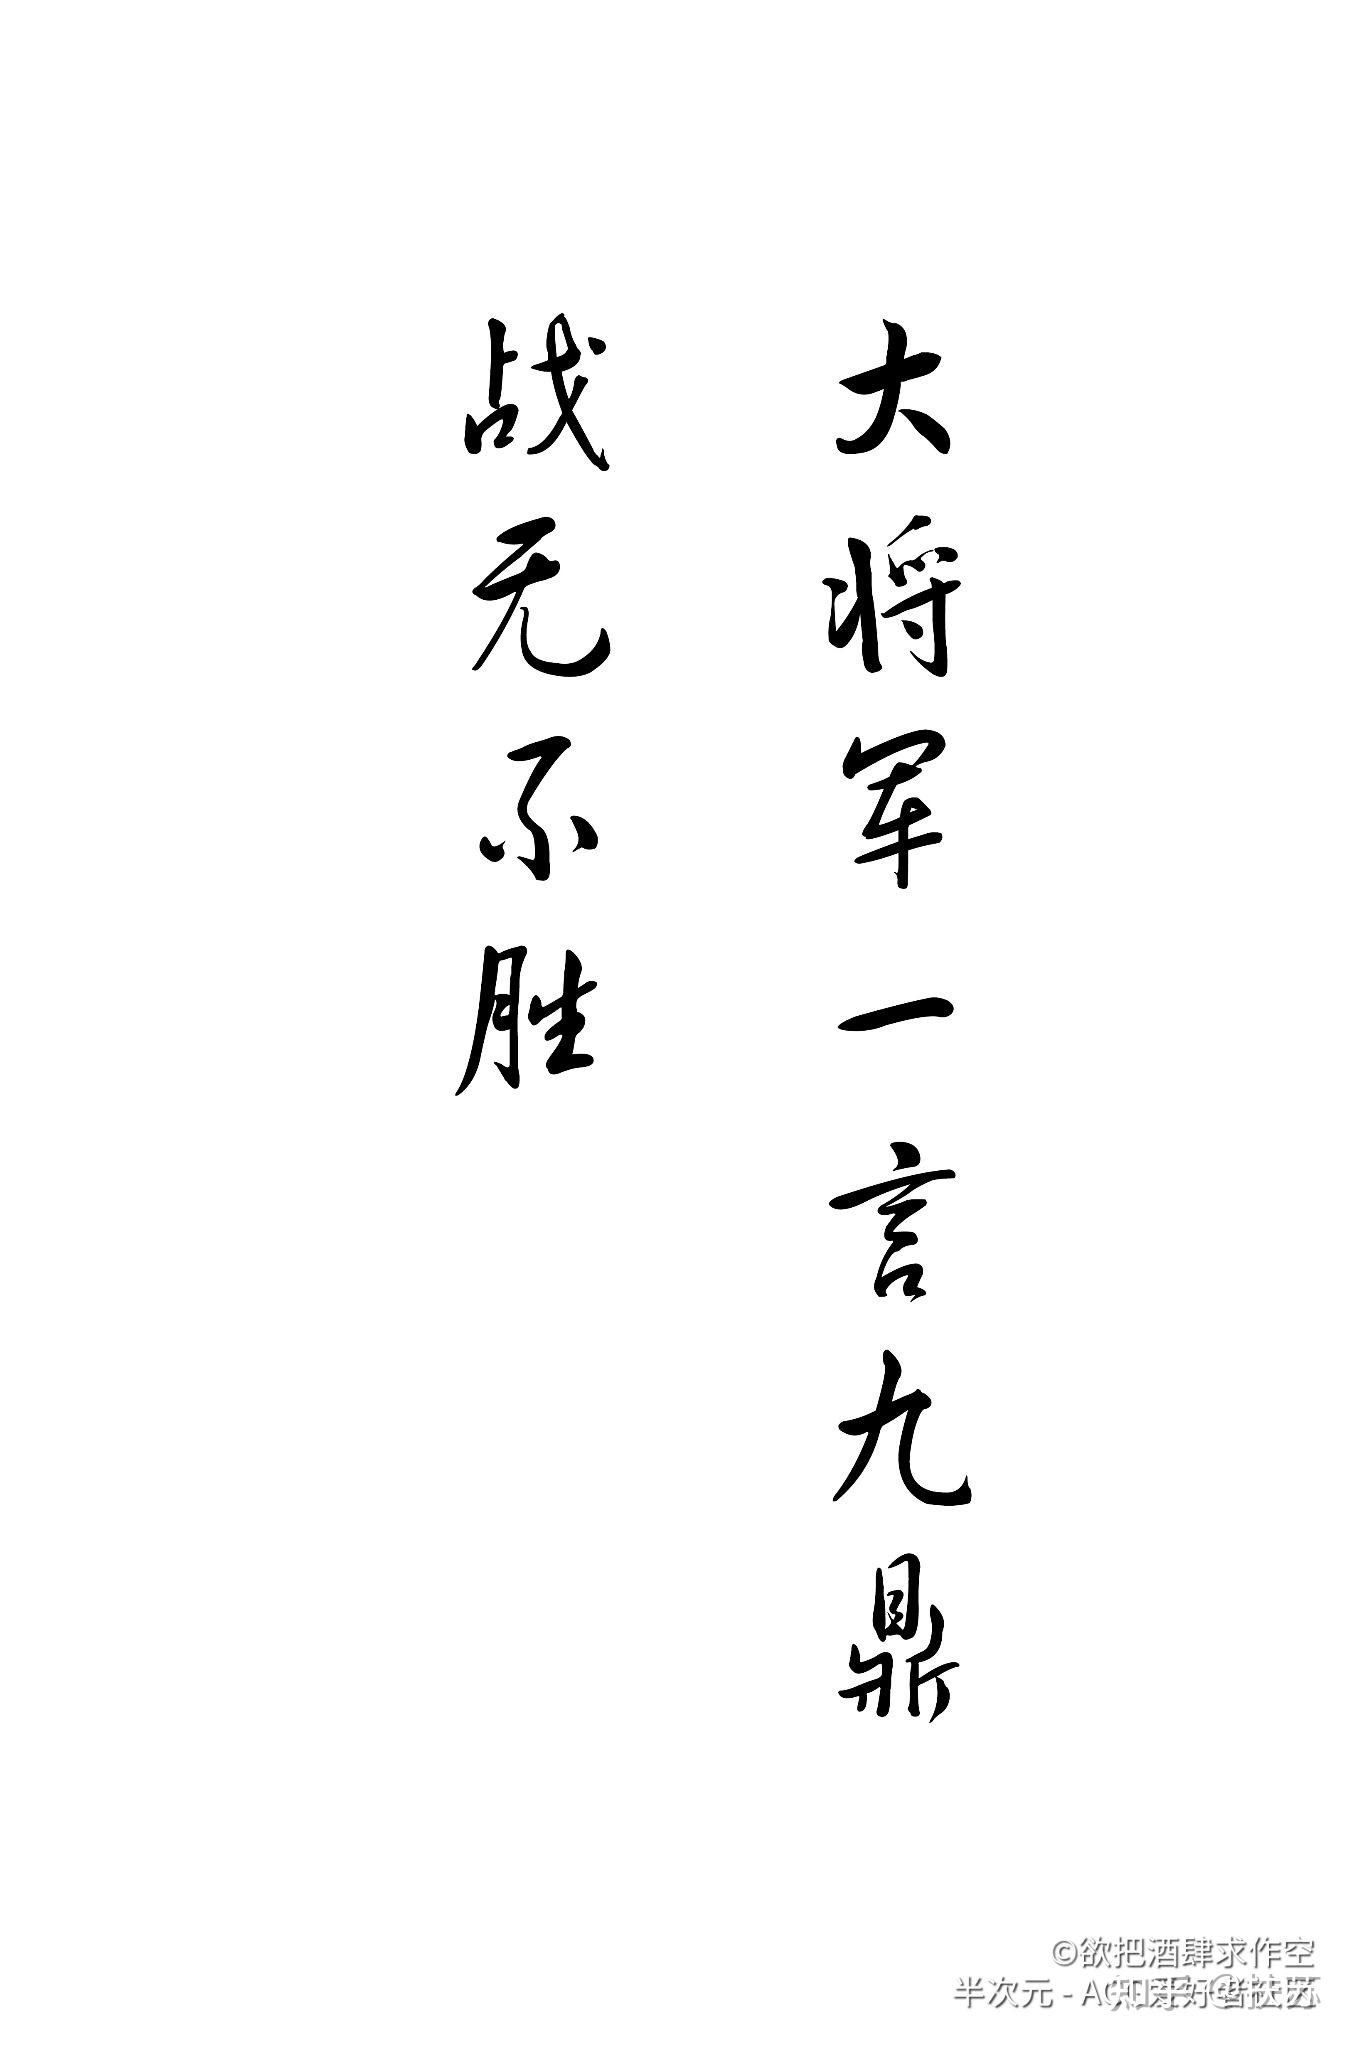 大将军一言九鼎
战无不胜
©欲把酒肆求作空
半次元 - AC
知乎